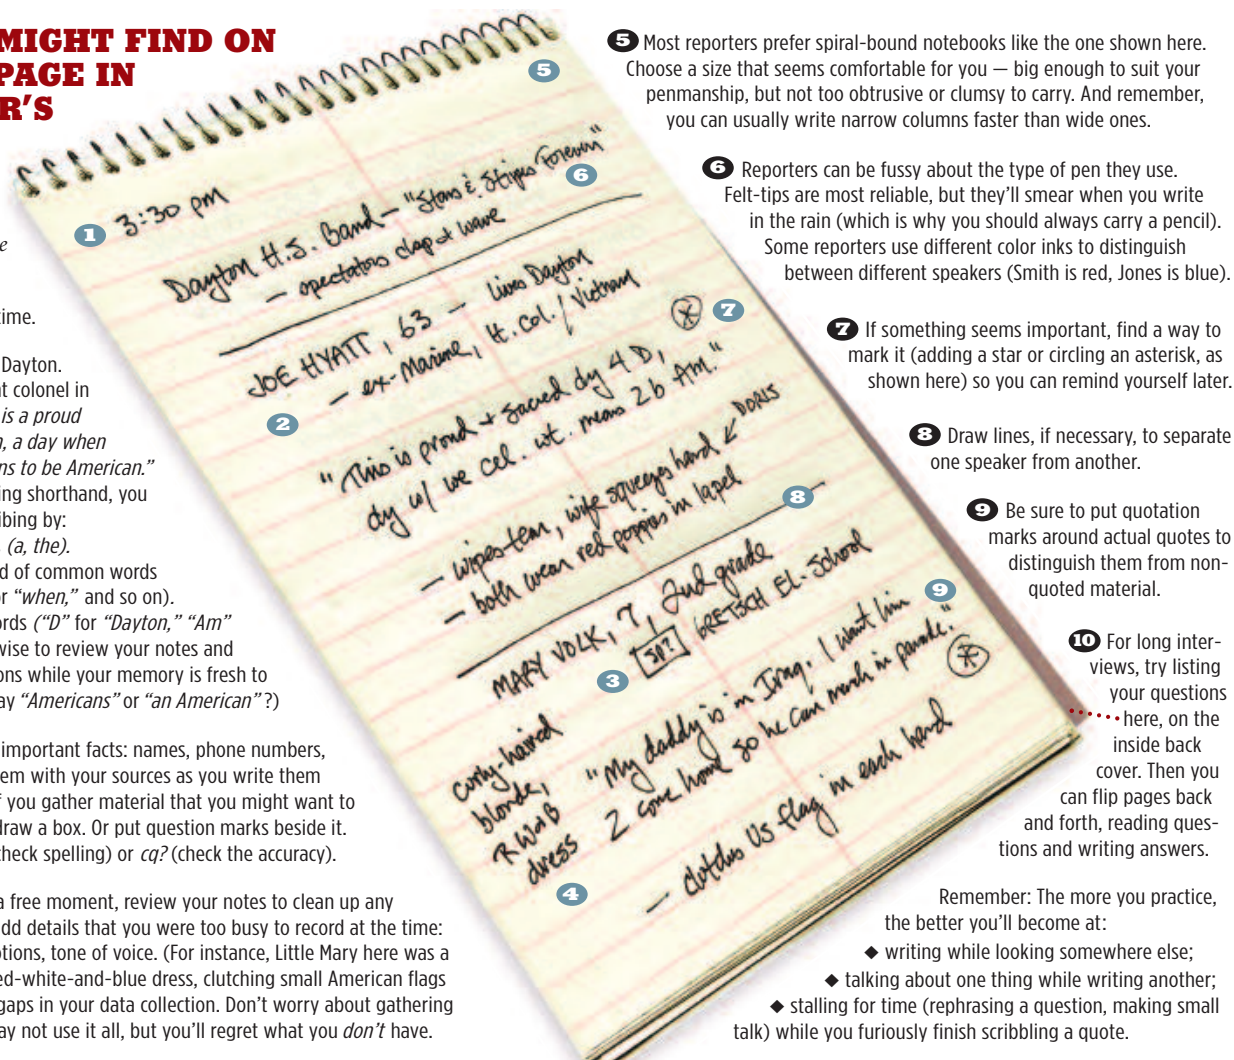 MIGHT FIND ON
PAGE IN
R'S
e
time.
Dayton.
t colonel in
is a proud
, a day when
ns to be American."
ing shorthand, you
ibing by:
(a, the).
d of common words
or "when," and so on).
rds ("D" for "Dayton," "Am"
wise to review your notes and
ons while your memory is fresh to
ay "Americans" or "an American" ?)
important facts: names, phone numbers,
em with your sources as you write them
f you gather material that you might want to
draw a box. Or put question marks beside it.
check spelling) or cq? (check the accuracy).
a free moment, review your notes to clean up any
dd details that you were too busy to record at the time:
otions, tone of voice. (For instance, Little Mary here was a
ed-white-and-blue dress, clutching small American flags
gaps in your data collection. Don't worry about gathering
ay not use it all, but you'll regret what you don't have.
1 3:30 pm
Dayton H.S. Band – "Stars & Stripes Forever"
6
– spectators clap + wave
JOE HYATT, 63 – Lives Dayton
– ex-Marine, lt. Col. / Vietnam
2
* 7
"This is proud + sacred dy 4 D,
dy w/ we cel. wt. means 2b Am."
– wipes tear, wife squeezes hard ← DORIS
– both wear red poppies in lapel
8
MARY VOLK, 7, 2nd grade
3 SP? GRETSCH EL. School
9
"My daddy is in Iraq. I want him
2 come home so he can march in parade."
*
curly-haired
blonde,
RW+B
dress
4
– clutches US flag in each hand
5
5 Most reporters prefer spiral-bound notebooks like the one shown here.
Choose a size that seems comfortable for you — big enough to suit your
penmanship, but not too obtrusive or clumsy to carry. And remember,
you can usually write narrow columns faster than wide ones.
6 Reporters can be fussy about the type of pen they use.
Felt-tips are most reliable, but they'll smear when you write
in the rain (which is why you should always carry a pencil).
Some reporters use different color inks to distinguish
between different speakers (Smith is red, Jones is blue).
7 If something seems important, find a way to
mark it (adding a star or circling an asterisk, as
shown here) so you can remind yourself later.
8 Draw lines, if necessary, to separate
one speaker from another.
9 Be sure to put quotation
marks around actual quotes to
distinguish them from non-
quoted material.
10 For long inter-
views, try listing
your questions
here, on the
inside back
cover. Then you
can flip pages back
and forth, reading ques-
tions and writing answers.
Remember: The more you practice,
the better you'll become at:
◆ writing while looking somewhere else;
◆ talking about one thing while writing another;
◆ stalling for time (rephrasing a question, making small
talk) while you furiously finish scribbling a quote.